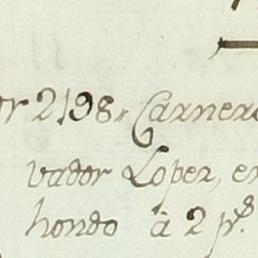 or 2198„ Carnero
vador Lopez, en
hondo â 2 p.s